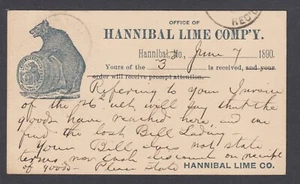 OFFICE OF
HANNIBAL LIME COMP'Y.
Hannibal, Mo., June 7 1890.
Yours of the 3 is received, and your
order will receive prompt attention.
Referring to your Invoice
of the will say that the
goods have reached here, and we
find the Bill Lading
your Bill does not state
terms nor Cash discount on receipt
of goods. Please State
HANNIBAL LIME CO.
RECD